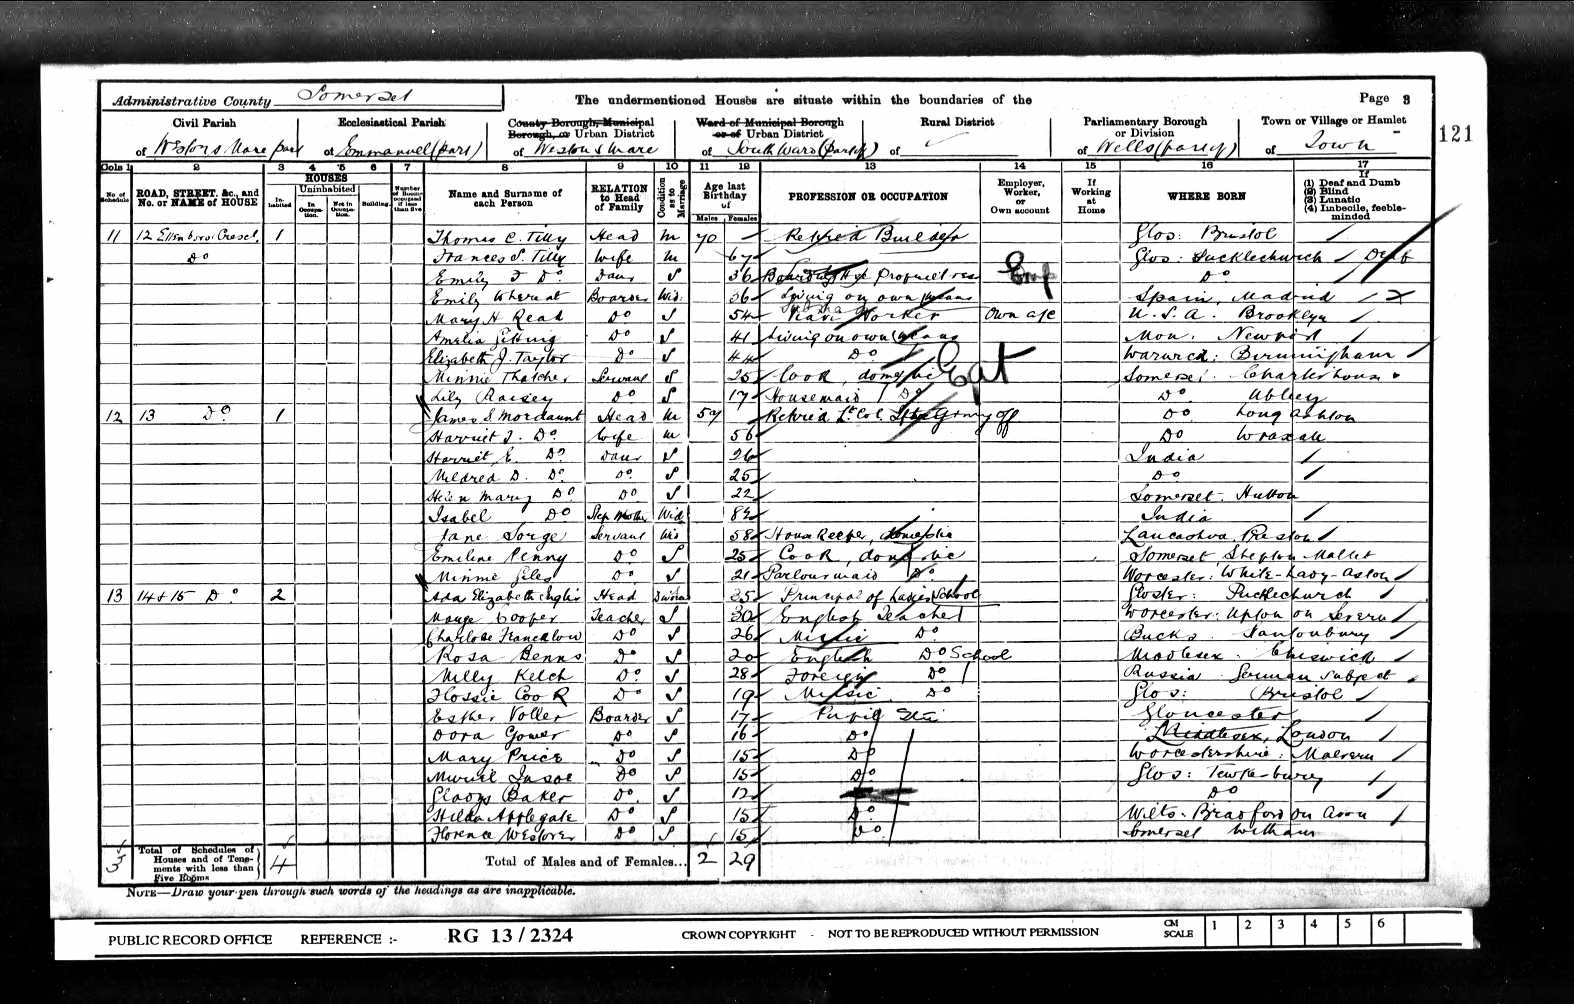 Administrative County Somerset
The undermentioned Houses are situate within the boundaries of the
Page 8
121
Civil Parish
of Weston S Mare part
Ecclesiastical Parish
of Emmanuel (part)
County Borough, Municipal Borough, or Urban District
of Weston S Mare
Ward of Municipal Borough or of Urban District
of South Ward (part of)
Rural District
of
Parliamentary Borough or Division
of Wells (part of)
Town or Village or Hamlet
of Town
Cols 1 2 3 4 5 6 7 8 9 10 11 12 13 14 15 16 17
No. of Schedule
ROAD, STREET, &c., and No. or NAME of HOUSE
HOUSES
Inhabited
Uninhabited
In Occupation.
Not in Occupation.
Building.
Number of Rooms occupied if less than five
Name and Surname of each Person
RELATION to Head of Family
Condition as to Marriage
Age last Birthday of
Males Females
PROFESSION OR OCCUPATION
Employer, Worker, or Own account
If Working at Home
WHERE BORN
If (1) Deaf and Dumb (2) Blind (3) Lunatic (4) Imbecile, feeble-minded
11 12 Ellenboro' Cresct. 1 Thomas C. Tilly Head M 70 Retired Builder Glos: Bristol
Do Frances S. Tilly Wife M 67 Glos: Pucklechurch
Emily Do Daur S 36 Boarding Hse Proprietress Emp Do
Emily Boarder Wid. 36 Living on own means Spain, Madrid
Mary H Read Do S 54 Worker Own a/c U.S.A. Brooklyn
Amelia Gitting Do S 41 Living on own means Mon. Newport
Elizabeth J. Taylor Do S 44 Do Warwick: Birmingham
Minnie Thatcher Servant S 25 Cook, domestic Somerset. Charterhouse
Lily Do S 17 Housemaid Do Do Ubley
12 13 Do 1 James S Mordaunt Head M 59 Retired Lt Col. Army Off Do Long Ashton
Harriet J. Do Wife M 56 Do Wraxall
Harriet E. Do Daur S 26 India
Mildred D. Do Do S 25 Do
Helen Mary Do Do S 22 Somerset. Hutton
Isabel Do Step Mother Wid India
Jane Servant Wid 58 Housekeeper, domestic Lancashire, Preston
Emeline Penny Do S 25 Cook, domestic Somerset, Shepton Mallet
Minnie Giles Do S 21 Parlourmaid Do Worcester: White-Lady-Aston
13 14 & 15 Do 2 Ada Elizabeth Head 35 Principal of Ladies School Gloster: Pucklechurch
Cooper Teacher S 30 English Teacher Worcester: Upton on Severn
Charlotte Francklow Do S 26 Music Do Bucks
Rosa Benns Do S 20 English Do School Middlesex. Chiswick
Nelly Kelch Do S 28 Foreign Do Russia German Subject
Flossie Cook Do S 19 Music Do Glos: Bristol
Esther Voller Boarder S 17 Pupil Gloucester
Dora Gomer Do S 16 Do Middlesex, London
Mary Price Do S 15 Do Worcestershire: Malvern
Muriel Do S 15 Do Glos: Tewkesbury
Gladys Baker Do S 12 Do
Hilda Applegate Do S 15 Do Wilts. Bradford on Avon
Florence Do S 15 Do Somerset Witham
3 Total of Schedules of Houses and of Tenements with less than Five Rooms 4 Total of Males and of Females... 2 29
NOTE—Draw your pen through such words of the headings as are inapplicable.
PUBLIC RECORD OFFICE REFERENCE :- RG 13 / 2324 CROWN COPYRIGHT - NOT TO BE REPRODUCED WITHOUT PERMISSION CM SCALE 1 2 3 4 5 6